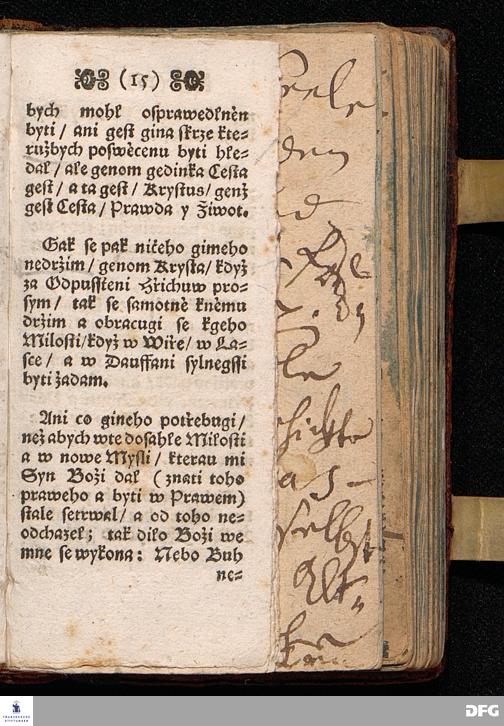 (15)
bych mohl osprawedlněn
byti / ani gest gina skrze kte-
ružbych poswěcenu byti hle-
dal / ale genom gedinka Cesta
gest / a ta gest / Krystus / genž
gest Cesta / Prawda y Žiwot.
Gak se pak ničeho gimeho
nedržim / genom Krysta / když
za Odpusstieni Hřichuw pro-
sym / tak se samotně kněmu
držim a obracugi se kgeho
Milosti / když w Wiře / w La-
sce / a w Dauffani sylnegssi
byti žadam.
Ani co gineho potřebugi /
než abych wte dosahle Milosti
a w nowe Mysli / kterau mi
Syn Boži dal ( znati toho
praweho a byti w Prawem)
stale setrwal / a od toho ne-
odchazel; tak dilo Boži we
mne se wykona: Nebo Buh
ne-
Seele
den
selbst
FRANCKESCHE
STIFTUNGEN
DFG